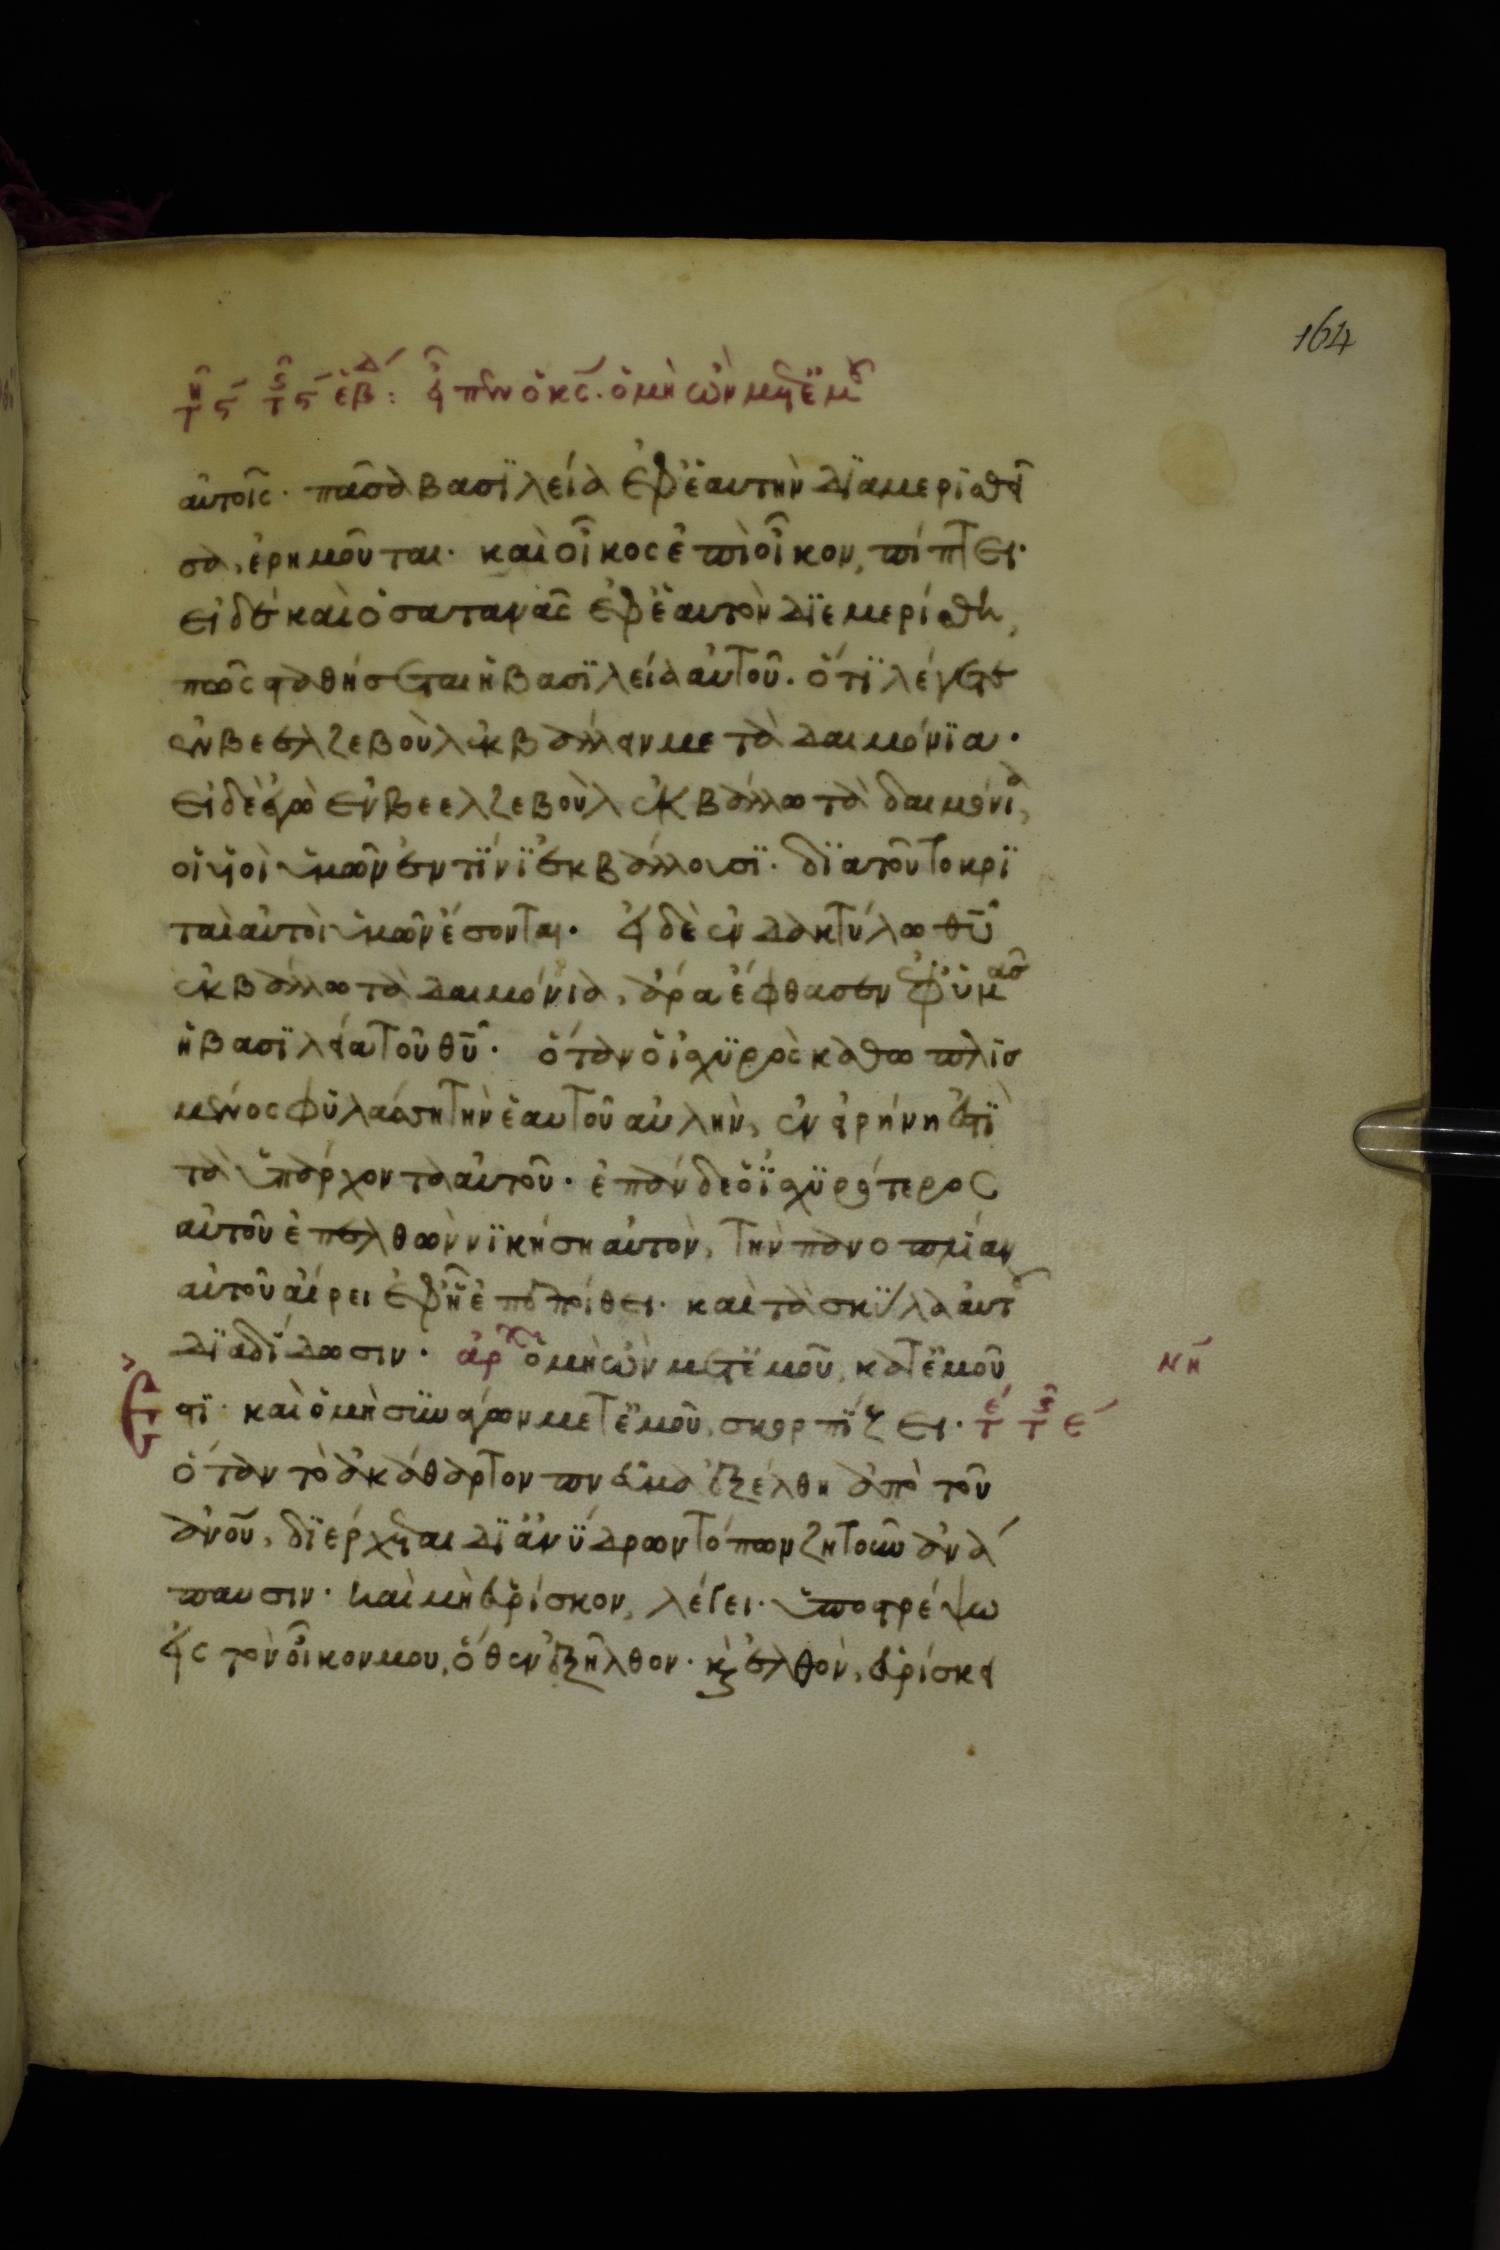 164
τῆ ϛ τῆς ϛ ἑβδ: εἶπεν ὁ κς. ὁ μὴ ὢν μετ ἐμοῦ
αὐτοῖς· πᾶσα βασϊλεία ἐφ ἑαυτὴν δϊαμερϊσθεῖ
σα, ἐρημοῦται· καὶ οἶκος ἐπὶ οἶκον, πίπτει·
εἰ δὲ καὶ ὁ σατανᾶς ἐφ ἑαυτὸν δϊεμερίσθη,
πῶς σταθήσεται ἡ βασϊλεία αὐτοῦ. ὅτϊ λέγετε
ἐν βεελζεβοὺλ ἐκβάλλειν με τὰ δαιμόνϊα·
εἰ δὲ ἐγὼ ἐν βεελζεβοὺλ ἐκβάλλω τὰ δαιμόνια,
οἱ υἱοὶ ὑμῶν ἐν τϊνϊ ἐκβάλλουσϊ· δϊατοῦτο κρϊ
ταὶ αὐτοὶ ὑμῶν ἔσονται· εἰ δὲ ἐν δακτύλω θῦ
ἐκβάλλω τὰ δαιμόνια, ἄρα ἔφθασεν ἐφ ὑμᾶσ
ἡ βασϊλεία τοῦ θῦ· ὅταν ὁ ἰσχϋρὸς καθωπλισ
μένος φϋλάσση τὴν ἑαυτοῦ αὐλὴν, ἐν εἰρήνη ἐστϊ
τὰ ὑπάρχοντα αὐτοῦ· ἐπὰν δὲ ὁ ἰσχϋρότερος
αὐτοῦ ἐπελθὼν νϊκήση αὐτὸν, τὴν πανοπλίαν
αὐτοῦ αἴρει ἐφ ἧ ἐπεποίθει· καὶ τὰ σκϋλα αὐτοῦ
δϊαδίδωσιν· ἀρχ ὁ μὴ ὢν μετ ἐμοῦ, κατ ἐμοῦ
νη
ἐστϊ· καὶ ὁ μὴ συνάγων μετ ἐμοῦ, σκορπϊζει· τε τῆς ε
ὅταν τὸ ἀκάθαρτον πνεῦμα ἐξέλθη ἀπὸ τοῦ
ἀνοῦ, δϊέρχεται δϊ ἀνϋδρων τόπων ζητοῦν ἀνά
παυσιν· καὶ μὴ εὑρίσκον, λέγει· ὑποστρέψω
εἰς τὸν οἶκον μου, ὅθεν ἐξῆλθον· κ ἐλθὸν, εὑρίσκει